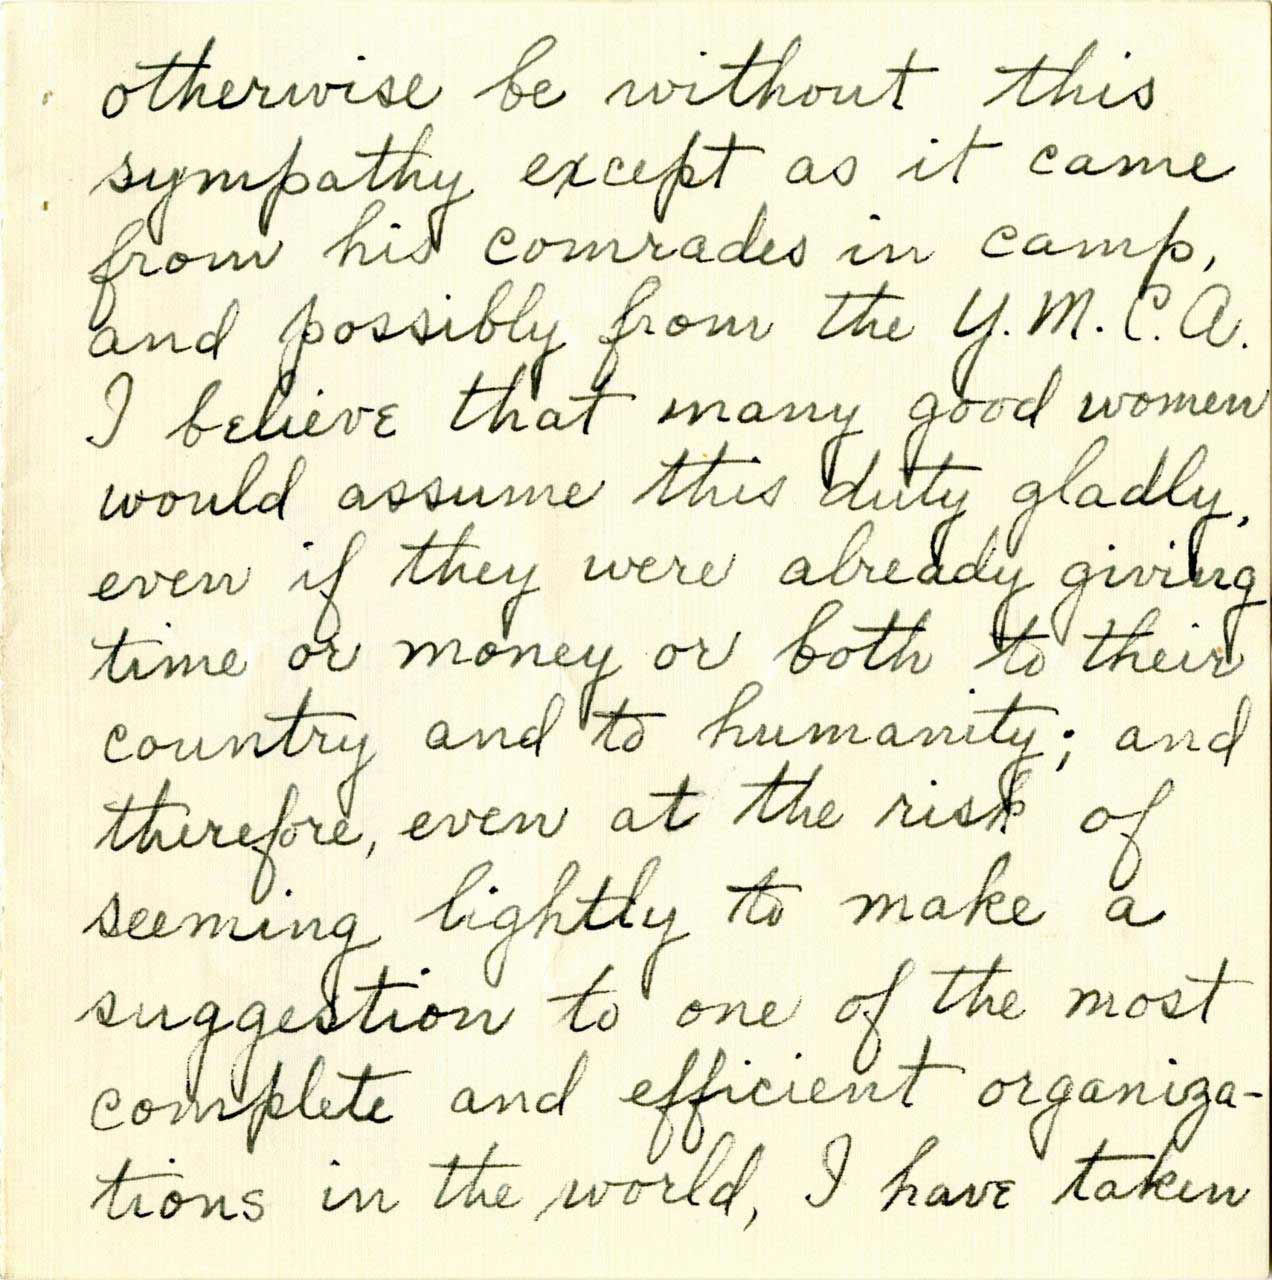 otherwise be without this
sympathy except as it came
from his comrades in camp,
and possibly from the Y.M.C.A.
I believe that many good women
would assume this duty gladly,
even if they were already giving
time or money or both to their
country and to humanity; and
therefore, even at the risk of
seeming lightly to make a
suggestion to one of the most
complete and efficient organiza-
tions in the world, I have taken